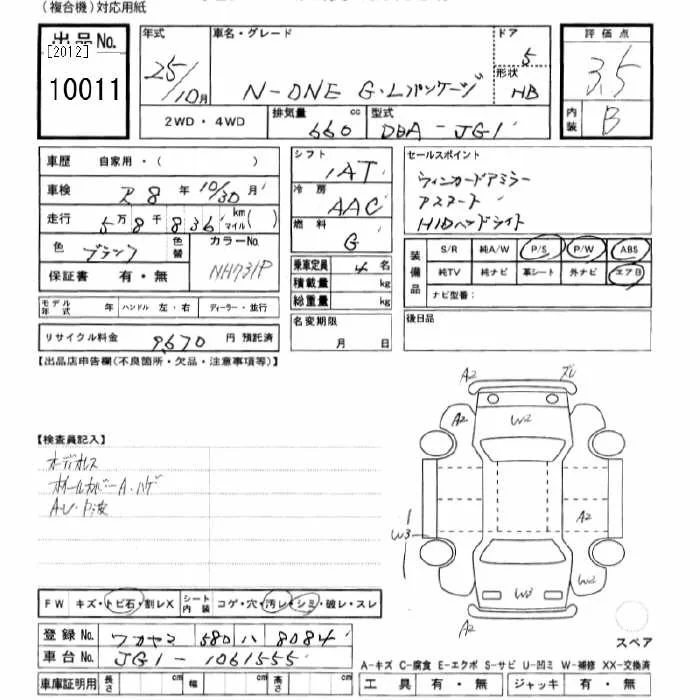 (複合機)対応用紙
出品No.
[2012]
10011
年式
25/10月
車名・グレード
N-ONE G・Lパッケージ
ドア
5
形状
HB
評価点
3.5
内装
B
2WD・4WD
排気量
660 cc
型式
DBA-JG1
車歴 自家用・( )
車検 R8年10/30月
走行 5万8千836 km マイル( )
色 ブラック
色替
カラーNo.
NH731P
保証書 有・無
モデル年式 年 ハンドル 左・右 ディーラー・並行
リサイクル料金 9,670 円 預託済
シフト
IAT
冷房
AAC
燃料
G
乗車定員 4 名
積載量 kg
総重量 kg
名変期限
月 日
セールスポイント
ウィンカードアミラー
アスマート
HIDヘッドライト
装備品
S/R 純A/W P/S P/W ABS
純TV 純ナビ 革シート 外ナビ エアB
ナビ型番:
後日品
【出品店申告欄(不良箇所・欠品・注意事項等)】
【検査員記入】
オーディオレス
ホイールカバーA・ハゲ
A2
ズレ
A2
W2
A2
W3
A2
W3
W2
A2
スペア
FW キズ・トビ石・割レX
シート内装 コゲ・穴・汚レ・シミ・破レ・スレ
登録No. ワカヤマ 580 ハ 8084
車台No. JG1-1061555
車庫証明用 長さ cm 幅 cm 高さ cm
A-キズ C-腐食 E-エクボ S-サビ U-凹ミ W-補修 XX-交換済
工具 有・無 ジャッキ 有・無